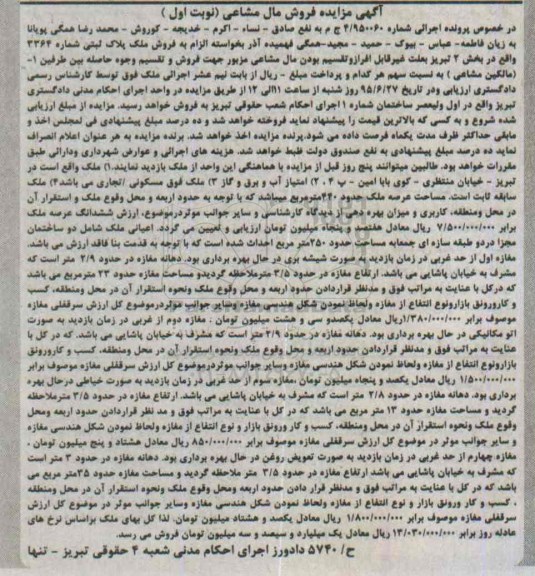 آگهی مزایده فروش مال مشاعی (نوبت اول )
در خصوص پرونده اجرائی شماره ۴/۹۵۰۰۶۰ ج م به نفع صادق - نساء - اکرم - خدیجه - کوروش - محمد رضا همگی پویانا
به زیان فاطمه- عباس - بیوک - حمید - مجید-همگی فهمیده آذر بخواسته الزام به فروش ملک پلاک ثبتی شماره ۳۳۶۴
واقع در بخش ۲ تبریز بعلت غیرقابل افرازوتقسیم بودن مال مشاعی مزبور جهت فروش و تقسیم وجوه حاصله بین طرفین ۱-
(مالکین مشاعی ) به نسبت سهم هر کدام و پرداخت مبلغ - ریال از بابت نیم عشر اجرائی ملک فوق توسط کارشناس رسمی
دادگستری ارزیابی ودر تاریخ ۹۵/۶/۲۷ روز شنبه از ساعت ۱۱الی ۱۲ از طریق مزایده در واحد اجرای احکام مدنی دادگستری
تبریز واقع در اول ولیعصر ساختمان شماره ۱ اجرای احکام شعب حقوقی تبریز به فروش خواهد رسید. مزایده از مبلغ ارزیابی
شده شروع و به کسی که بالاترین قیمت را پیشنهاد نماید فروخته خواهد شد و ده درصد مبلغ پیشنهادی فی لمجلس اخذ و
مابقی حداکثر ظرف مدت یکماه فرصت داده می شود.برنده مزایده اخذ خواهد شد. برنده مزایده به هر عنوان اعلام انصراف
نماید ده درصد مبلغ پیشنهادی به نفع صندوق دولت ضبط خواهد شد. هزینه های اجرائی و عوارض شهرداری ودارائی طبق
مقررات خواهد بود. طالبین میتوانند پنج روز قبل از مزایده با هماهنگی این واحد از ملک بازدید نمایند.۱) ملک واقع است در
تبریز - خیابان منتظری - کوی بابا امین - پ ۴ . ۲) امتیاز آب و برق و گاز ۳) ملک فوق مسکونی /تجاری می باشد۴) ملک
سابقه ثابت است. مساحت عرصه ملک در حدود مترمربع میباشد که با توجه به حدود اربعه و محل وقوع ملک و استقرار آن
در محل ومنطقه، کاربری و میزان بهره دهی از دیدگاه کارشناسی و سایر جوانب موثردرموضوع، ارزش ششدانگ عرصه ملک
برابر ۷/۵۰۰/۰۰۰/۰۰۰ ریال معادل هفتصد و پنجاه میلیون تومان ارزیابی و تعیین می گردد. اعیانی ملک شامل دو ساختمان
مجزا دردو طبقه سازه ای جمعابه مساحت حدود ۲۵۰متر مربع احداث شده است که با توجه به قدمت بنا فاقد ارزش می باشد.
مغازه اول از حد غربی در زمان بازدید به صورت شیشه بری در حال بهره برداری بود. دهانه مغازه در حدود ۲/۹ متر است که
مشرف به خیابان پاشایی می باشد. ارتفاع مغازه در حدود ۳/۵ مترملاحظه گردیدو مساحت مغازه حدود ۲۳ مترمربع می باشد
که درکل با عنایت به مراتب فوق و مدنظر قراردادن حدود اربعه و محل وقوع ملک ونحوه استقرار آن در محل ومنطقه، کسب
و کارورونق بازارونوع التفاع از مغازه ولحاظ نمودن شکل هندسی مغازه وسایر جوانب موثردرموضوع کل ارزش سرقفلی مغازه
موصوف برابر ۱/۳۸۰/۰۰۰/۰۰۰ریال معادل یکصدو سی و هشت میلیون تومان . مغازه دوم از غربی در زمان بازدید به صورت
اتو مکانیکی در حال بهره برداری بود. دهانه مغازه در حدود ۲/۹ متر است که مشرف به خیابان پاشایی می باشد. که در کل با
عنایت به مراتب فوق و مدنظر قراردادن حدود اربعه و محل وقوع ملک ونحوه استقرار آن در محل ومنطقه، کسب و کارورونق
بازارونوع انتفاع از مغازه ولحاظ نمودن شکل هندسی مغازه وسایر جوانب موثردرموضوع کل ارزش سرقفلی مغازه موصوف برابر
۱/۵۰۰/۰۰۰/۰۰۰ ریال معادل یکصد و پنجاه میلیون تومان .مغازه سوم از حد غربی در زمان بازدید به صورت خیاطی درحال بهره
برداری بود. دهانه مغازه در حدود ۲/۸ متر است که مشرف به خیابان پاشایی می باشد. ارتفاع مغازه در حدود ۳/۵ مترملاحظه
گردید و مساحت مغازه حدود ۱۳ متر مربع می باشد که در کل با عنایت به مراتب فوق و مد نظر قراردادن حدود اربعه ومحل
وقوع ملک ونحوه استقرار آن در محل ومنطقه، کسب و کار ورونق بازار و نوع انتفاع از مغازه ولحاظ نمودن شکل هندسی مغازه
و سایر جوانب موثر در موضوع کل ارزش سرقفلی مغازه موصوف برابر ۸۵۰/۰۰۰/۰۰۰ ریال معادل هشتاد و پنج میلیون تومان .
مغازه چهارم از حد غربی در زمان بازدید به صورت تعویض روغن در حال بهره برداری بود. دهانه مغازه در حدود ۳ متر است
که مشرف به خیابان پاشایی می باشد ارتفاع مغازه در حدود ۳/۵ متر ملاحظه گردید و مساحت مغازه حدود ۳۵متر مربع می
باشد که در کل با عنایت به مراتب فوق و مدنظر قرار دادن حدود اربعه ومحل وقوع ملک ونحوه استقرار آن در محل ومنطقه
، کسب و کار ورونق بازار و نوع انتفاع از مغازه ولحاظ نمودن شکل هندسی مغازه وسایر جوانب موثر در موضوع کل ارزش
سرقفلی مغازه موصوف برابر ۱/۸۰۰/۰۰۰/۰۰۰ ریال معادل یکصد و هشتاد میلیون تومان. لذا کل بهای ملک براساس نرخ های
عادله روز برابر ۱۳/۰۳۰/۰۰۰/۰۰۰ ریال معادل یک میلیارد و سیصد و سه میلیون تومان فروش می رسد.
ح/ ۵۷۴۰ دادورز اجرای احکام مدنی شعبه ۴ حقوقی تبریز - تنها